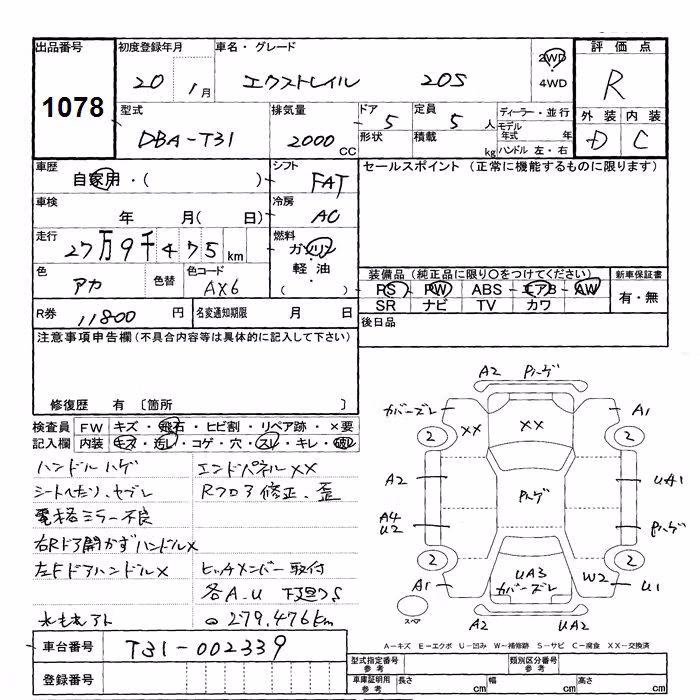 出品番号
1078
初度登録年月
20 1月
車名・グレード
エクストレイル 20S
2WD
4WD
評価点
R
外装 内装
D C
型式
DBA-T31
排気量
2000 CC
ドア 5
形状
定員 5人
積載 kg
ディーラー・並行
モデル年式 年
ハンドル 左・右
車歴
自家用・( )
シフト
FAT
車検
年 月( 日)
冷房
AC
走行
27万9千475km
燃料
ガソリン
・
軽油
( )
色
アカ
色替
色コード
AX6
R券 11800円
名変通知期限 月 日
セールスポイント（正常に機能するものに限ります）
装備品（純正品に限り○をつけてください）
PS PW ABS エアB AW
SR ナビ TV カワ
新車保証書
有・無
後日品
注意事項申告欄（不具合内容等は具体的に記入して下さい）
修復歴 有 〔箇所 〕
検査員記入欄
FW キズ・飛石・ヒビ割・リペア跡・×要
内装 キズ・汚レ・コゲ・穴・スレ・キレ・破レ
ハンドルハゲ
シートヘタリ、セブレ
電格ミラー不良
右Rドア開かずハンドル×
左Fドアハンドル×
エンドパネル××
Rフロア修正、歪
ヒッチメンバー取付
各A.U
279,476km
車台番号 T31-002339
登録番号
A2 Pハゲ
カバーズレ
×× ××
A1
2 2
A2
UA1
Pハゲ
A4
U2
Pハゲ
2 2
A1
UA3
カバーズレ
W2
U1
スペア
A2 UA2
A－キズ E－エクボ U－凹み W－補修跡 S－サビ C－腐食 XX－交換済
型式指定番号 参考
類別区分番号 参考
車庫証明用 参考
長さ cm 幅 cm 高さ cm